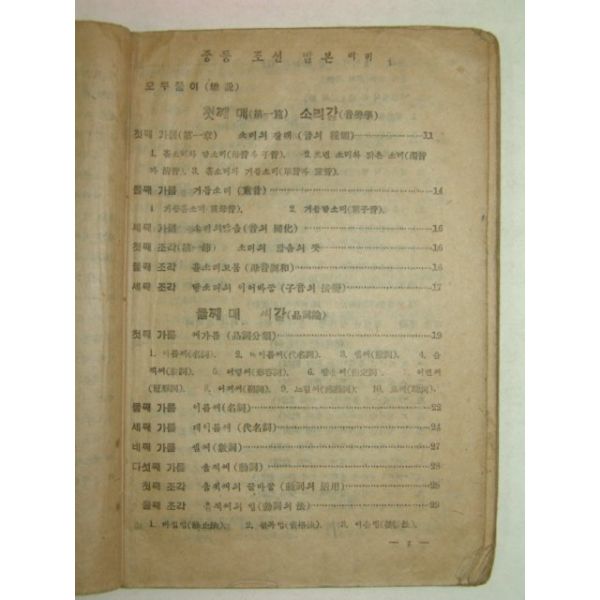 중등 조선 말본
모두풀이 (總說)
첫째 매 (第一篇) 소리갈 (音聲學)
첫째 가름 (第一章) 소리의 갈래 (音의 種類) 11
1. 홀소리와 닿소리 (母音과 子音). 2. 흐린 소리와 맑은 소리 (濁音
과 淸音). 3. 홑소리와 거듭소리 (單音과 重音).
둘째 가름 거듭소리 (重音) 14
1 거듭홀소리 (重母音). 2. 거듭닿소리 (重子音).
세째 가름 (音의 變化) 16
첫째 조각 (第一節) 소리의 16
둘째 조각 홀소리고룸 (母音調和) 16
세째 조각 닿소리의 이어바꿈 (子音의 接變) 17
둘째 매 씨갈 (品詞論)
첫째 가름 씨가름 (品詞分類) 19
1. 이름씨 (名詞). 2. (代名詞). 3. 셈씨 (數詞). 4. 움
직씨 (動詞). 5. 어떻씨 (形容詞). 6. 잡음씨 (指定詞). 7. 어떤씨
(冠形詞). 8. 어찌씨 (副詞). 9. 느낌씨 (感動詞). 10. 토씨 (助詞).
둘째 가름 이름씨 (名詞) 22
세째 가름 대이름씨 (代名詞) 24
네째 가름 셈씨 (數詞) 27
다섯째 가름 움직씨 (動詞) 28
첫째 조각 움직씨의 끝바꿈 (動詞의 活用) 28
둘째 조각 움직씨의 법 (動詞의 法) 29
1. 마침법 (終止法). 2. (資格法). 3. 이음법 (接續法).